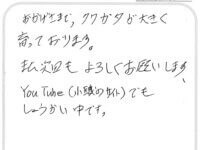 おかげさまで, クワガタが大きく
育っております。
次回もよろしくお願いします。
YouTube(小額のサイト)でも
しょうかい中です。